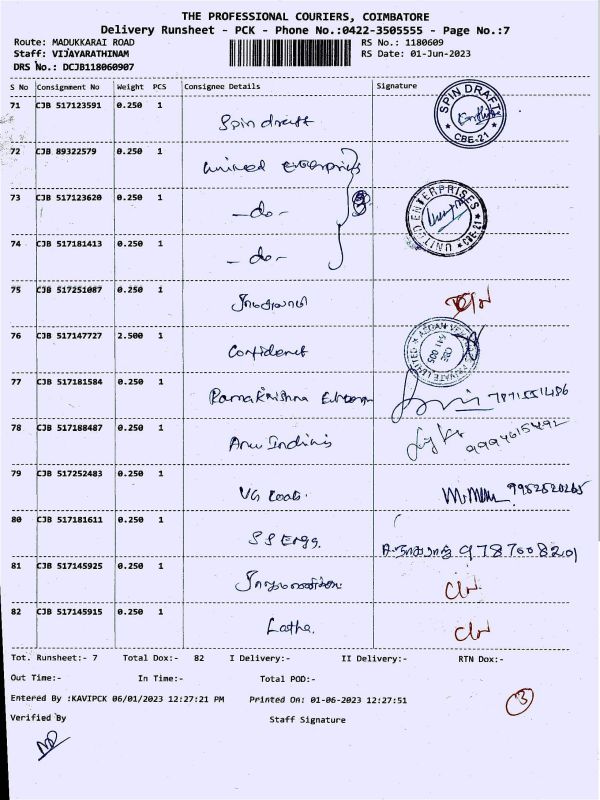 THE PROFESSIONAL COURIERS, COIMBATORE
Delivery Runsheet - PCK - Phone No.:0422-3505555 - Page No.:7
Route: MADUKKARAI ROAD RS No.: 1180609
Staff: VIJAYARATHINAM RS Date: 01-Jun-2023
DRS No.: DCJB118060907
S No Consignment No Weight PCS Consignee Details Signature
71 CJB 517123591 0.250 1 Spin draft SPIN DRAFT CBE-21
72 CJB 89322579 0.250 1 United Enterprises
73 CJB 517123620 0.250 1 -do- UNITED ENTERPRISES CBE-21
74 CJB 517181413 0.250 1 -do-
75 CJB 517251087 0.250 1
76 CJB 517147727 2.500 1 Confidence PRIVATE LIMITED CBE 641 005
77 CJB 517181584 0.250 1 Ramakrishna
78 CJB 517188487 0.250 1 Anu 9994615492
79 CJB 517252483 0.250 1 VG Coats.
80 CJB 517181611 0.250 1 SS Engg. 9787008201
81 CJB 517145925 0.250 1
82 CJB 517145915 0.250 1 Latha.
Tot. Runsheet:- 7 Total Dox:- 82 I Delivery:- II Delivery:- RTN Dox:-
Out Time:- In Time:- Total POD:-
Entered By :KAVIPCK 06/01/2023 12:27:21 PM Printed On: 01-06-2023 12:27:51
3
Verified By Staff Signature